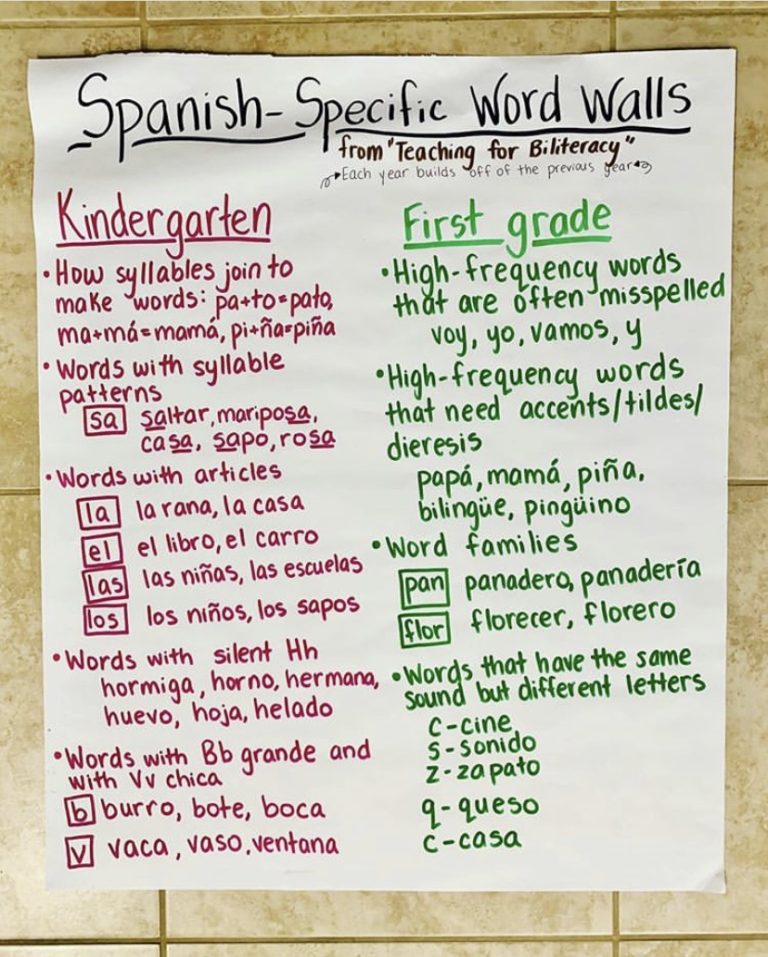 Spanish-Specific Word Walls
from "Teaching for Biliteracy"
Each year builds off of the previous year
Kindergarten
• How syllables join to
make words: pa+to=pato,
ma+má=mamá, pi+ña=piña
• Words with syllable
patterns
sa saltar, mariposa,
casa, sapo, rosa
• Words with articles
la la rana, la casa
el el libro, el carro
las las niñas, las escuelas
los los niños, los sapos
• Words with silent Hh
hormiga, horno, hermana,
huevo, hoja, helado
• Words with Bb grande and
with Vv chica
b burro, bote, boca
v vaca, vaso, ventana
First grade
• High-frequency words
that are often misspelled
voy, yo, vamos, y
• High-frequency words
that need accents/tildes/
dieresis
papá, mamá, piña,
bilingüe, pingüino
• Word families
pan panadero, panadería
flor florecer, florero
• Words that have the same
sound but different letters
c-cine
s-sonido
z-zapato
q-queso
c-casa